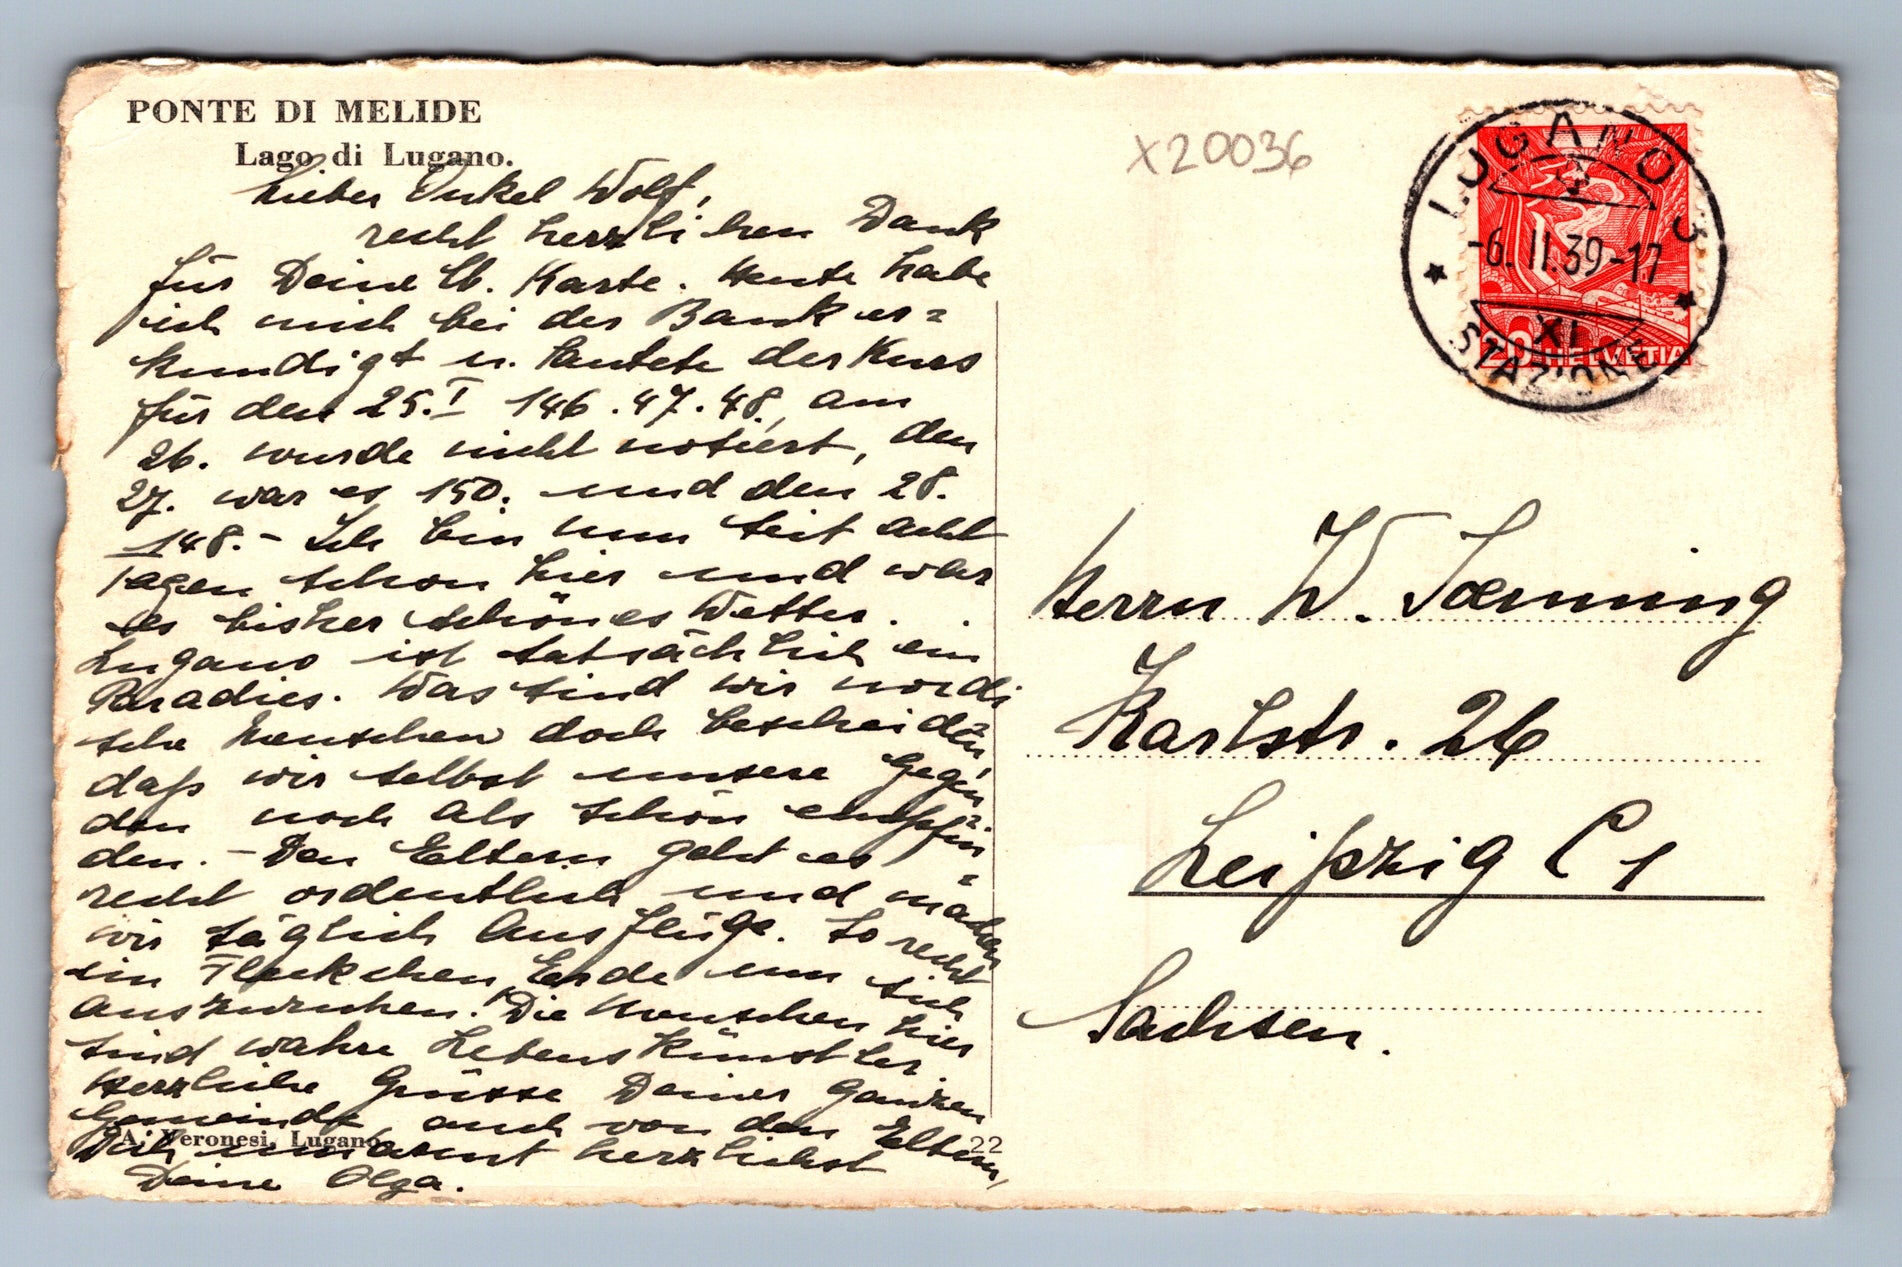 PONTE DI MELIDE
Lago di Lugano.
Lieber Onkel Wolf,
recht herzlichen Dank
für Deine lb. Karte. Heute habe
ich mich bei der Bank er=
kundigt u. lautete der Kurs
für den 25.I 146.47.48., am
26. wurde nicht notiert, den
27. war es 150. und den 28.
148.- Ich bin nun seit acht
Tagen schon hier und war
es bisher schönes Wetter.
Lugano ist tatsächlich ein
Paradies. Was sind wir nordi
sche Menschen doch bescheiden,
daß wir selbst unsere Gegen
den noch als schön empfin=
den. - Den Eltern geht es
recht ordentlich und machen
wir täglich Ausflüge. So recht
ein Fleckchen Erde um sich
auszuruhen! Die Menschen hier
sind wahre Lebenskünstler.
Herzliche Grüsse Deiner ganzen
Gemeinde auch von den Eltern,
Dich umarmt herzlichst
Deine Olga.
A. Veronesi, Lugano
22
X20036
LUGANO 3
-6. II. 39-17
XI
STAZIONE
20 HELVETIA
Herrn W. Soenning
Karlstr. 26
Leipzig C 1
Sachsen.